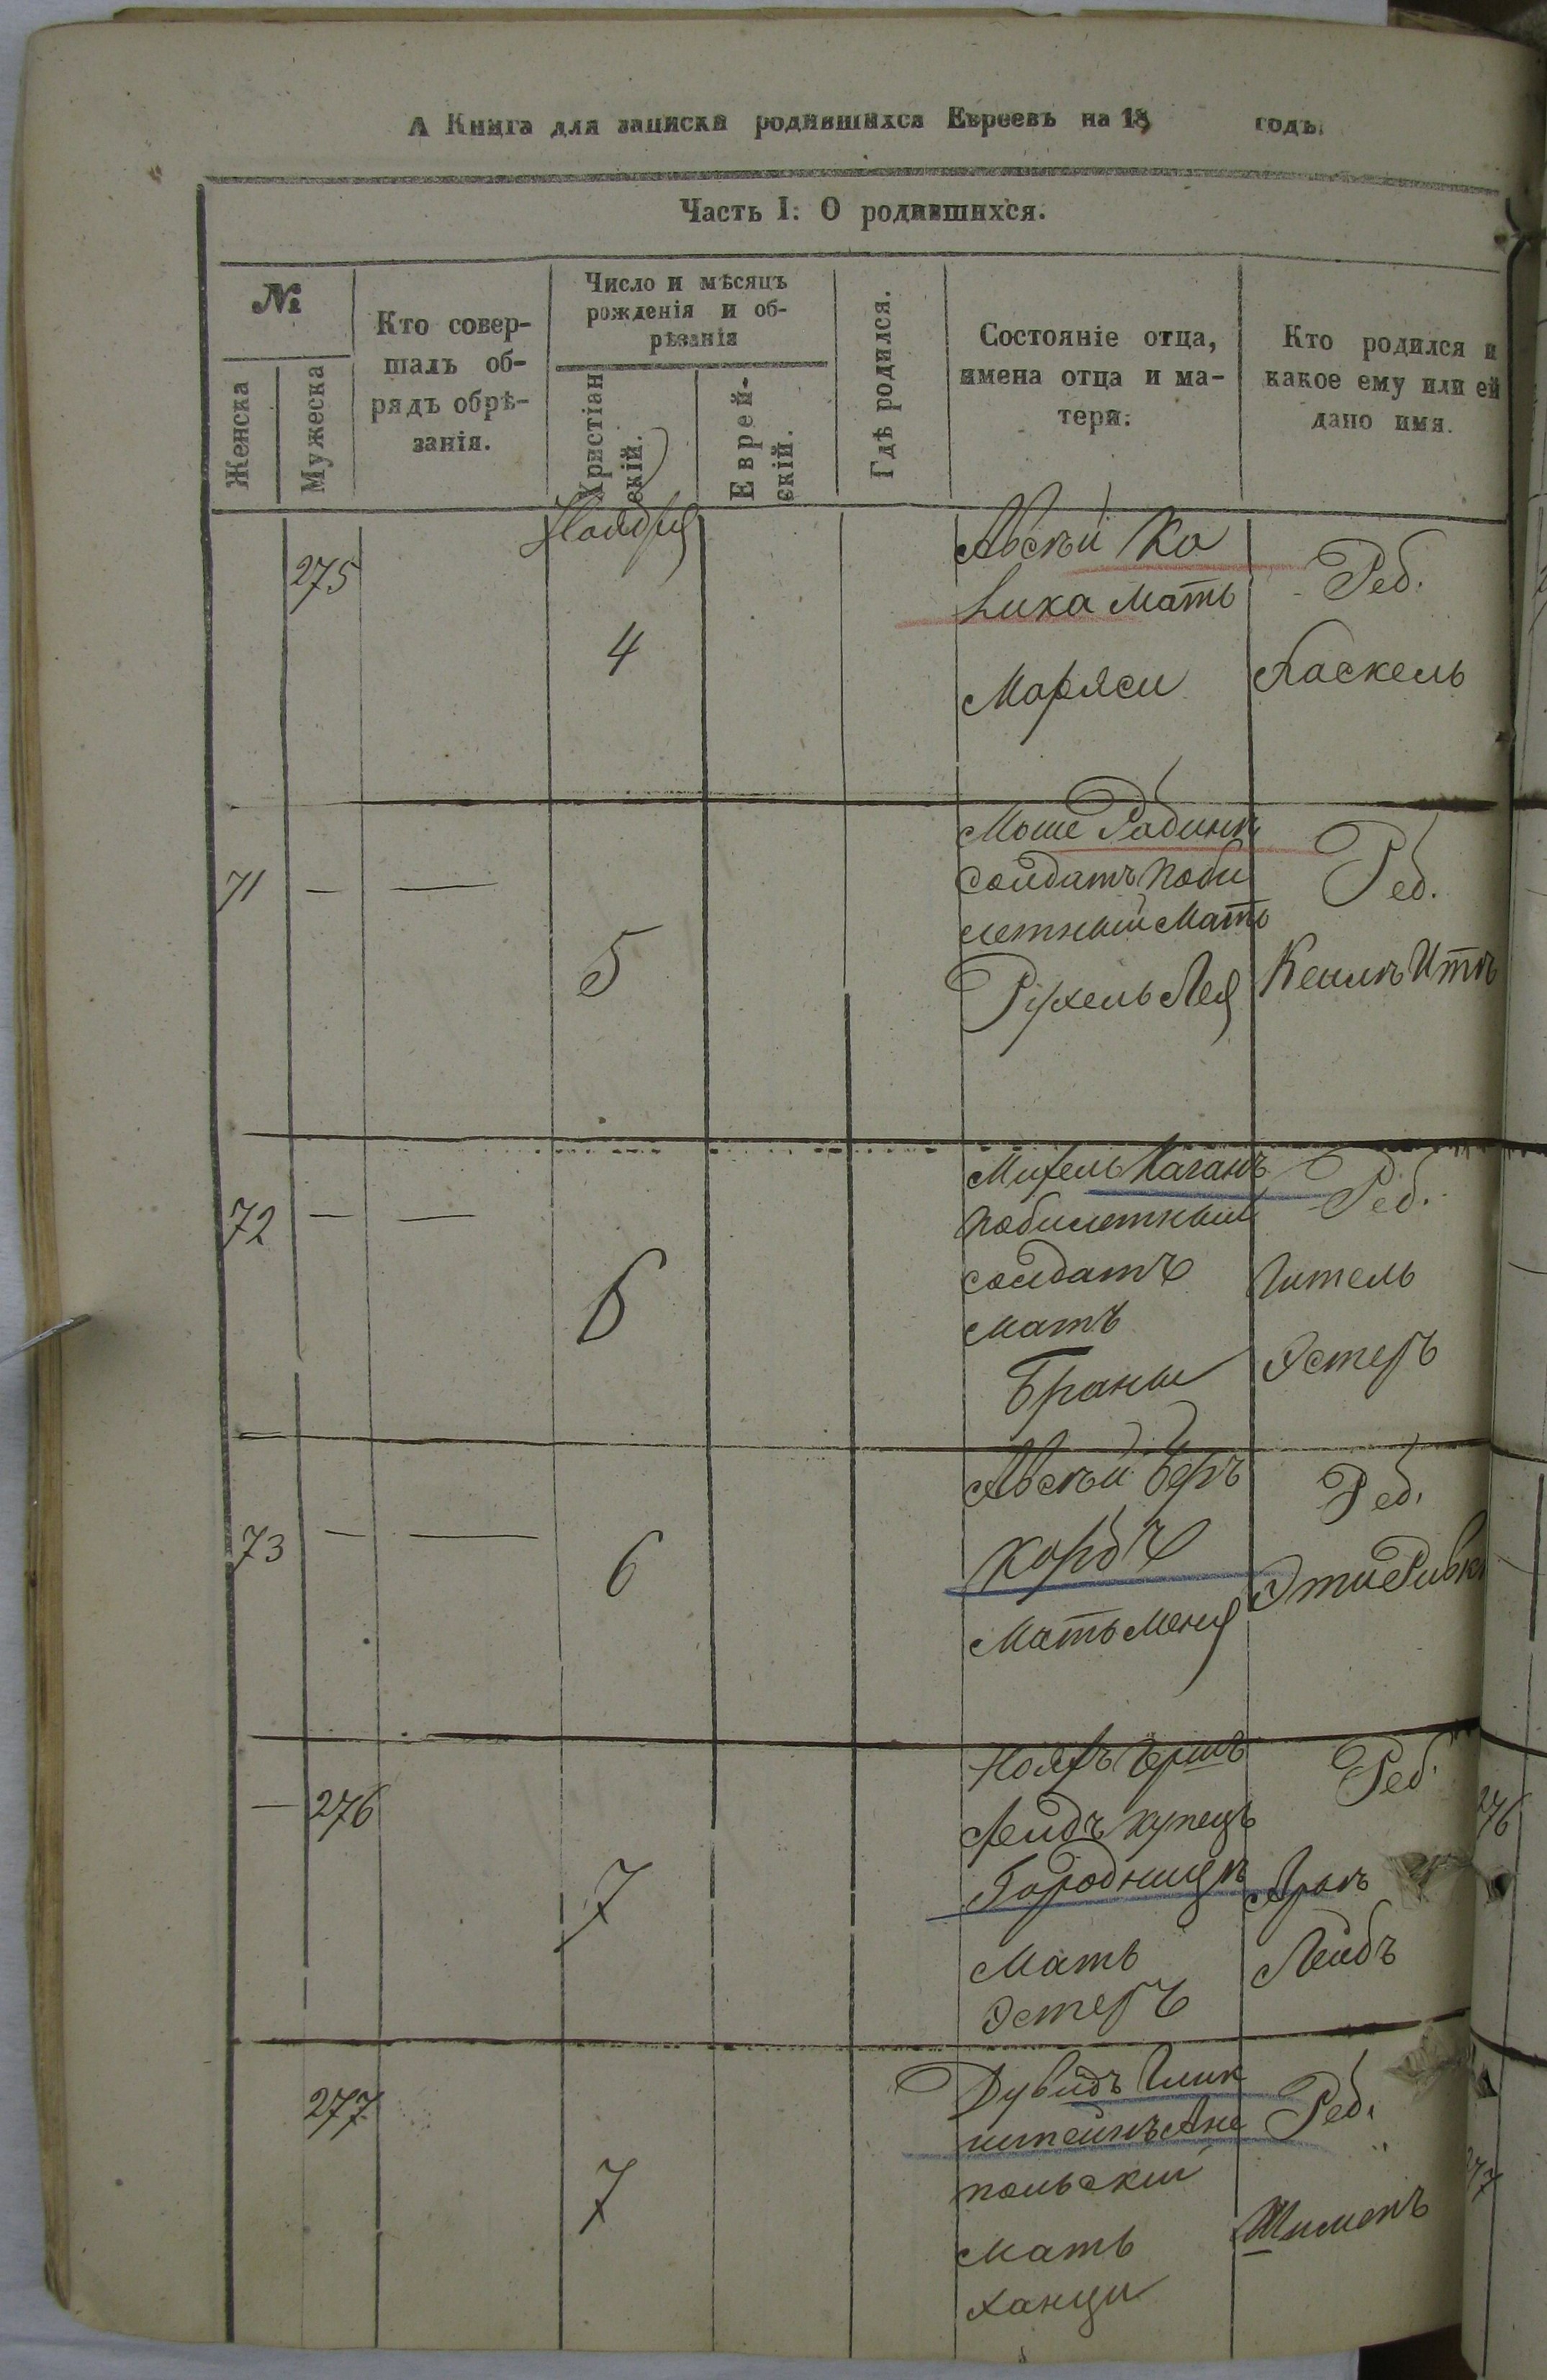 А Книга для записки родившихся Евреевъ на 18 годъ.
Часть I: О родившихся.
№
Женска
Мужеска
Кто совер-
шалъ об-
рядъ обрѣ-
занія.
Число и мѣсяцъ
рожденія и об-
рѣзанія
Христіан
скій.
Еврей-
скій.
Гдѣ родился.
Состояніе отца,
имена отца и ма-
тери.
Кто родился и
какое ему или ей
дано имя.
Ноября
275
4
Ко
Мать
Маряси
Реб.
Хаскель
71 — —
5
Моше Рабинъ
солдатъ поби
летный Мать
Рухель Лея
Реб.
72 — —
6
Михель Каганъ
побилетный
солдатъ
мать
Браны
Реб.
Гитель
Эстеръ
73 — —
6
Беръ
Корбъ
Мать Меня
Реб.
Эти Ривка
— 276
7
Гершъ
Лейбъ купецъ
Городницк
Мать
Эстеръ
Реб.
Аронъ
Лейбъ
277
7
Дувидъ Глик
штейнъ Ане
польский
мать
Ханци
Реб.
276
277